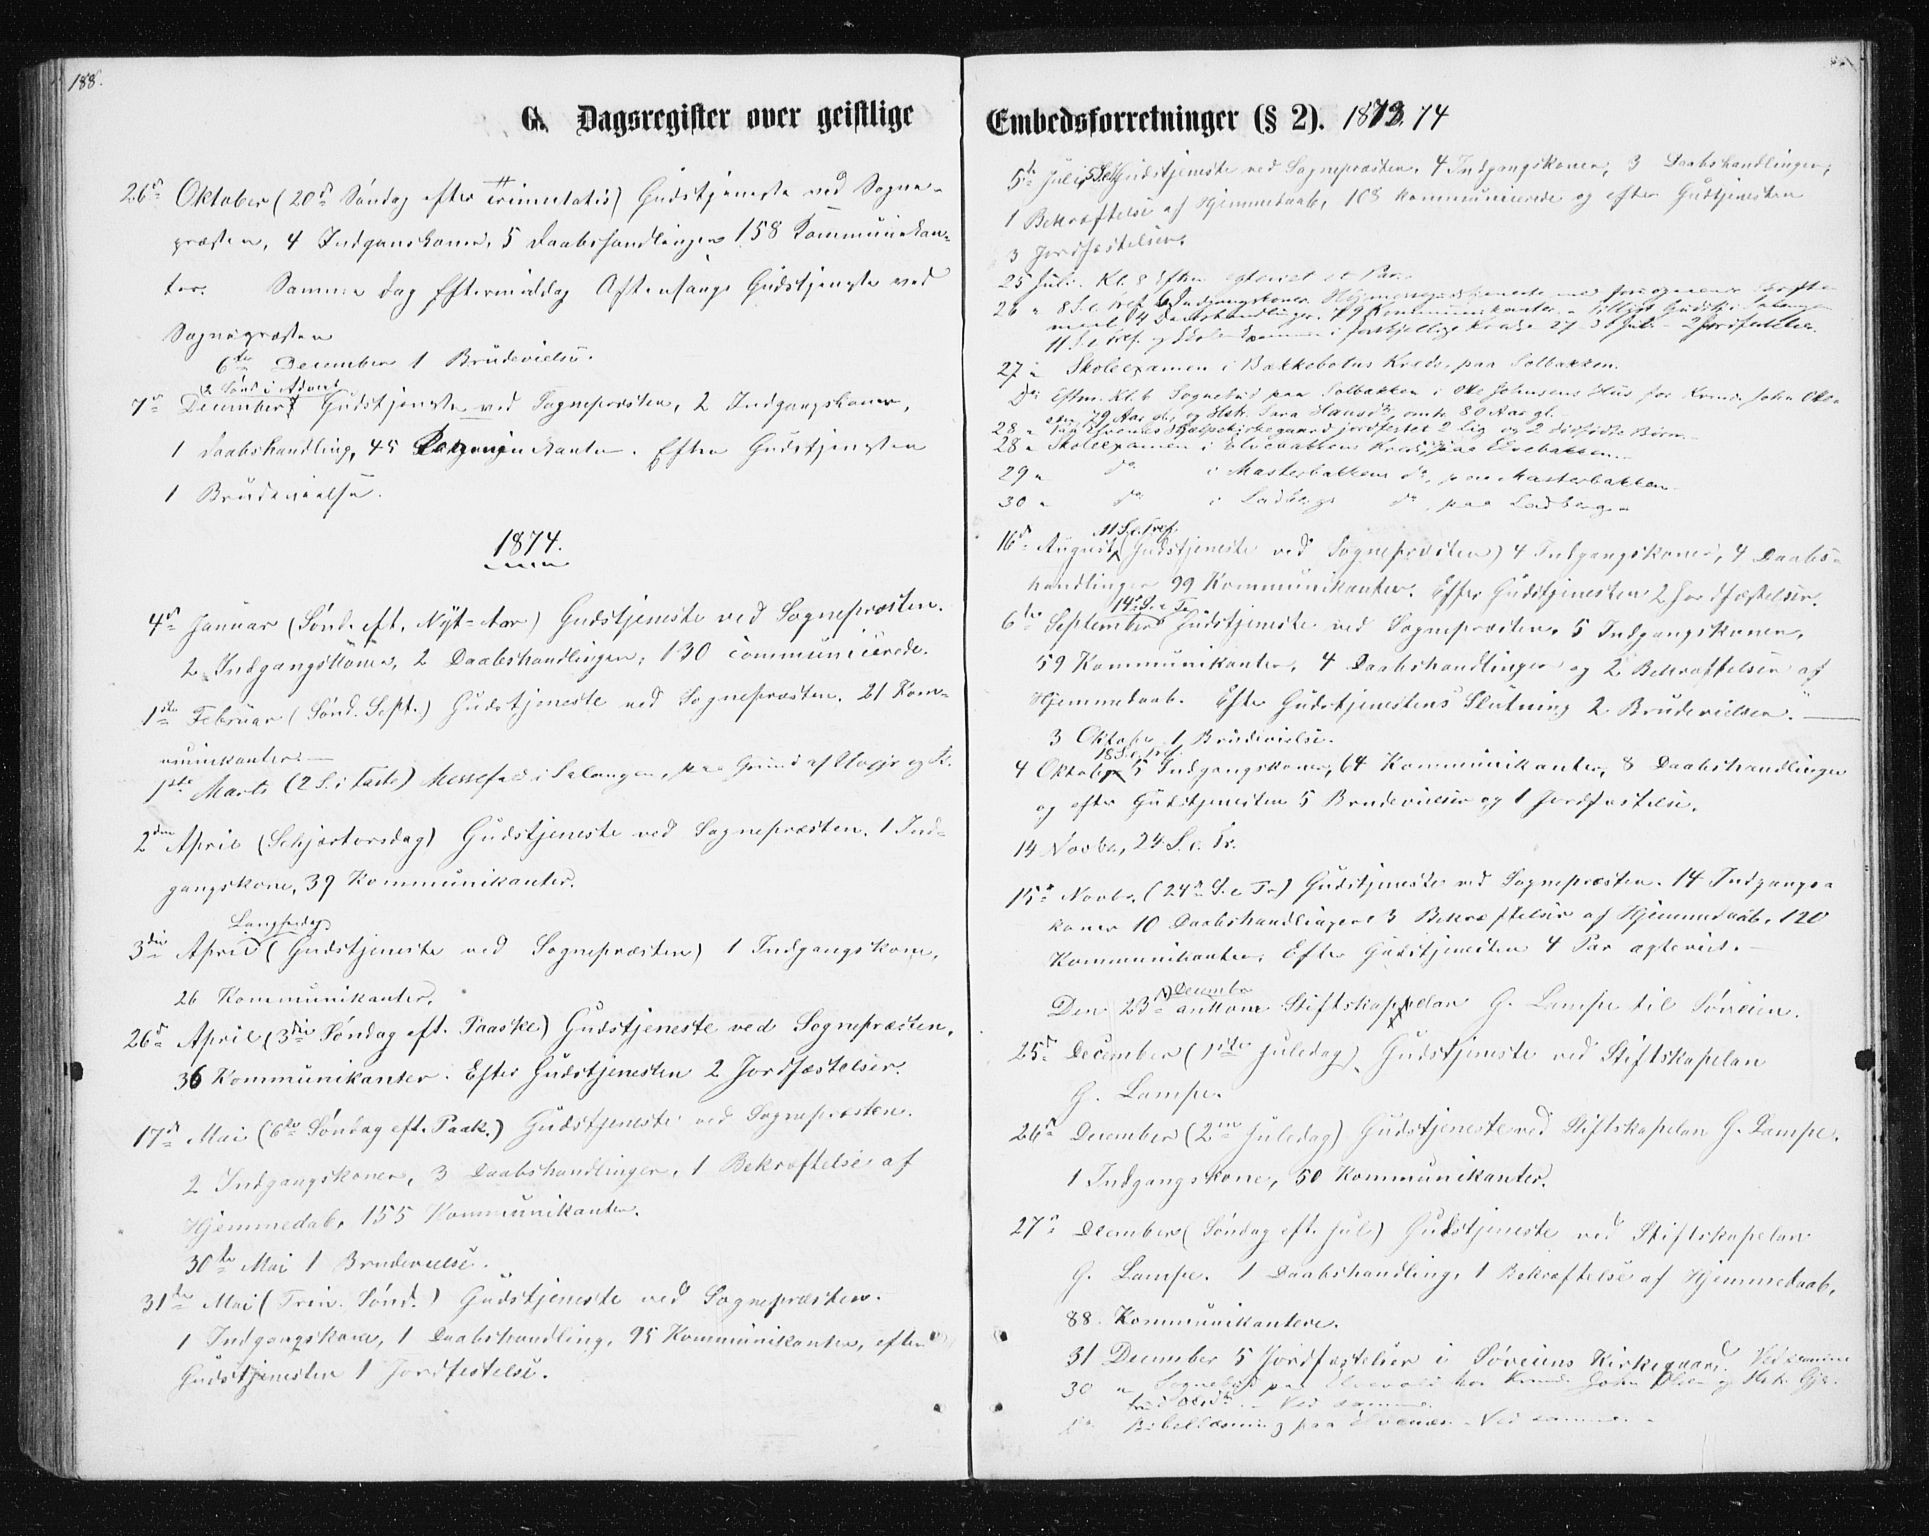 188.
G. Dagsregister over geistlige
26de Oktober (20de Søndag efter Trinnitatis) Gudstjeneste ved Sogne-
præsten, 4 Indganskoner, 5 Daabshandlinger 158 Kommunikan-
ter. Samme Dag Eftermiddag Aftensangs Gudstjeneste ved
Sognepræsten
6te December 1 Brudevielse.
2 Sønd i Advent
7de December Gudstjeneste ved Sognepræsten, 2 Indgangskoner,
1 Daabshandling, 45 Efter Gudstjenesten
1 Brudevielse.
1874.
4de Januar (Sønd. eft. Nyt-Aar) Gudstjeneste ved Sognepræsten.
2 Indgangskoner, 2 Daabshandlinger, 130 communicerede.
1ste Februar (Sønd. Sept.) Gudstjeneste ved Sognepræsten. 21 Kom-
munikanter. —
1ste Marts (2 S. i Faste) Messefald i Salangen, paa Grund af
2den April (Schjærtorsdag) Gudstjeneste ved Sognepræsten. 1 Ind-
gangskone, 39 Kommunikanter.
Langfredag
3die April (Gudstjeneste ved Sognepræsten) 1 Indgangskone,
26 Kommunikanter.
26de April (3die Søndag eft. Paaske) Gudstjeneste ved Sognepræsten.
36 Kommunikanter. Efter Gudstjenesten 2 Jordfæstelser.
17de Mai (6te Søndag eft. Paask.) Gudstjeneste ved Sognepræsten.
2 Indgangskoner, 3 Daabshandlinger, 1 Bekræftelse af
Hjemmedab, 155 Kommunikanter.
30te Mai 1 Brudevielse.
31te Mai (Trin. Sønd.) Gudstjeneste ved Sognepræsten.
1 Indgangskone, 1 Daabshandling, 95 Kommunikanter, efter
Gudstjenesten 1 Jordfestelse.
Embedsforretninger (§ 2). 1873. 74
5te Juli, Gudstjeneste ved Sognepræsten, 4 Indgangskoner, 3 Daabshandlinger,
1 Bekræftelse af Hjemmedaab, 108 kommunicerede og efter Gudtjenesten
3 Jordfæstelser.
25 Juli. Kl. 8 Efterm. egteviet et Par.
26 " 8 S. e. Tref. 6 Indgangskoner.
4 Daabshandlinger. 79 Kommunikanter.
11 S. e. Tref. 27-30 Juli - 2 Jordfestelser.
27 " Skoleexamen i Bakkebotns Kreds, paa Solbakken.
Do Efterm. Kl. 6 Sognebud paa Solbakken i Ole Johnsens Hus for Kaand. John Ole-
sen, 79 Aar gl. og Hstr. Sara Hansdr, omtr. 80 Aar gl.
28 " paa Elvenes Hjælpekirkegaard jordfestet 2 Lig og 2 dødfødte Børn.
28 " Skoleexamen i Elvevattens Kreds, paa Elvebakken.
29 " do i Masterbakkens do, paa Masterbakken
30 " do i Ladbergs do, paa Ladberg.
11 S. e. Tref.
16de August (Gudstjeneste ved Sognepræsten) 4 Indgangskoner, 4 Daabs-
handlinger 99 Kommunikanter. Efter Gudstjenesten 2 Jordfæstelser.
14de S. e. Tr.
6te September Gudstjeneste ved Sognepræsten. 5 Indgangskoner,
59 Kommunikanter, 4 Daabshandlinger og 2 Bekræftelser af
Hjemmedaab. Efter Gudstjenestens Slutning 2 Brudevielser. —
3 Oktober 1 Brudevielse.
18 S. e. Tref.
4 Oktober 5 Indgangskoner, 64 Kommunikanter, 8 Daabshandlinger
og efter Gudstjenesten 5 Brudevielser og 1 Jordfæstelse.
14 Novbr, 24 S. e. Tr.
15de Novbr. (24de S. e. Tr.) Gudstjeneste ved Sognepræsten. 14 Indgangs-
koner 10 Daabshandlinger 3 Bekræftelser af Hjemmedaab, 120
Kommunikanter. Efter Gudstjenesten 4 Par egteviet. —
December
Den 23de ankom Stiftskappelan G. Lampe til Søreien.
25de December (1ste Juledag) Gudstjeneste ved Stiftskapelan
G. Lampe.
26de December (2den Juledag) Gudstjeneste ved Stiftskapelan G. Lampe.
1 Indgangskone, 50 Kommunikanter.
27de Dcember (Søndag eft. Jul) Gudstjeneste ved Stiftskapelan
G. Lampe. 1 Daabshandling, 1 Bekræftelse af Hjemmedaab,
88. Kommunikantere.
31 December 5 Jordfæstelser i Søreiens Kirkegaard. Ved samme
30 " Sognebud paa Elvevold hos Kaand. John Olsen og Hstr. Gje-
trud Olsdr. - Ved samme.
Do Bibellæsning paa Elvenes. - Ved samme. -